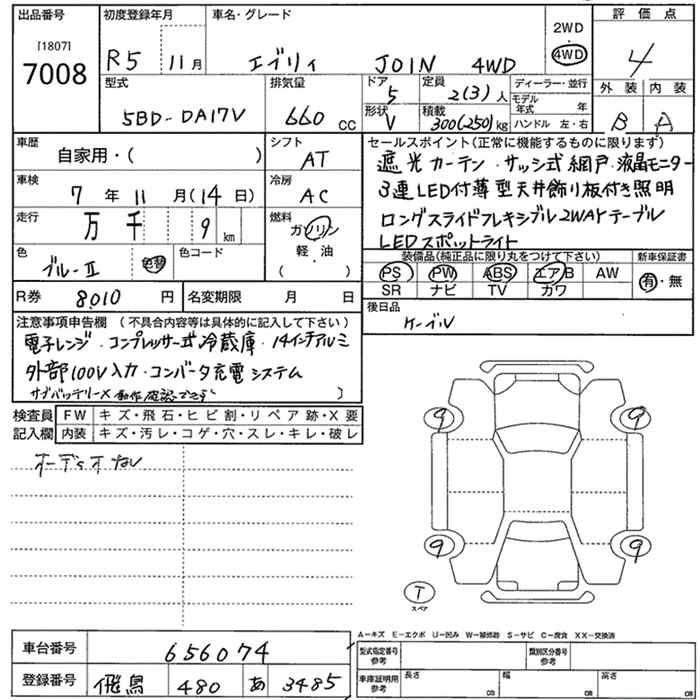 出品番号 初度登録年月 車名・グレード 評価点
[1807]
7008
R5 11月 エブリィ JOIN 4WD
2WD
4WD
4
型式 排気量 ドア 定員 ディーラー・並行 外装 内装
5BD-DA17V 660 cc 5 2(3)人
形状 積載 モデル年式 年
V 300(250)kg ハンドル 左・右 B A
車歴 シフト セールスポイント(正常に機能するものに限ります)
自家用・( ) AT
遮光カーテン・サッシ式網戸・液晶モニター
車検 冷房
7年11月(14日) AC
3連LED付薄型天井飾り板付き照明
走行 燃料
万千 9 km ガソリン
軽・油
( )
ロングスライドフレキシブル2WAYテーブル
LEDスポットライト
色 色コード
ブルーII 色替
装備品(純正品に限り丸をつけて下さい) 新車保証書
PS PW ABS エアB AW 有・無
SR ナビ TV カワ
R券 8,010 円 名変期限 月 日
後日品
ケーブル
注意事項申告欄 (不具合内容等は具体的に記入して下さい)
電子レンジ・コンプレッサー式冷蔵庫・14インチアルミ
外部100V入力・コンバータ充電システム
サブバッテリーX 動作確認できず )
検査員 FW キズ・飛石・ヒビ割・リペア跡・X要
記入欄 内装 キズ・汚レ・コゲ・穴・スレ・キレ・破レ
9 9
9 9
T
スペア
A−キズ E−エクボ U−凹み W−補修跡 S−サビ C−腐食 XX−交換済
車台番号 656074
型式指定番号 参考 類別区分番号 参考
登録番号 飛鳥 480 あ 3485
車庫証明用 参考 長さ cm 幅 cm 高さ cm